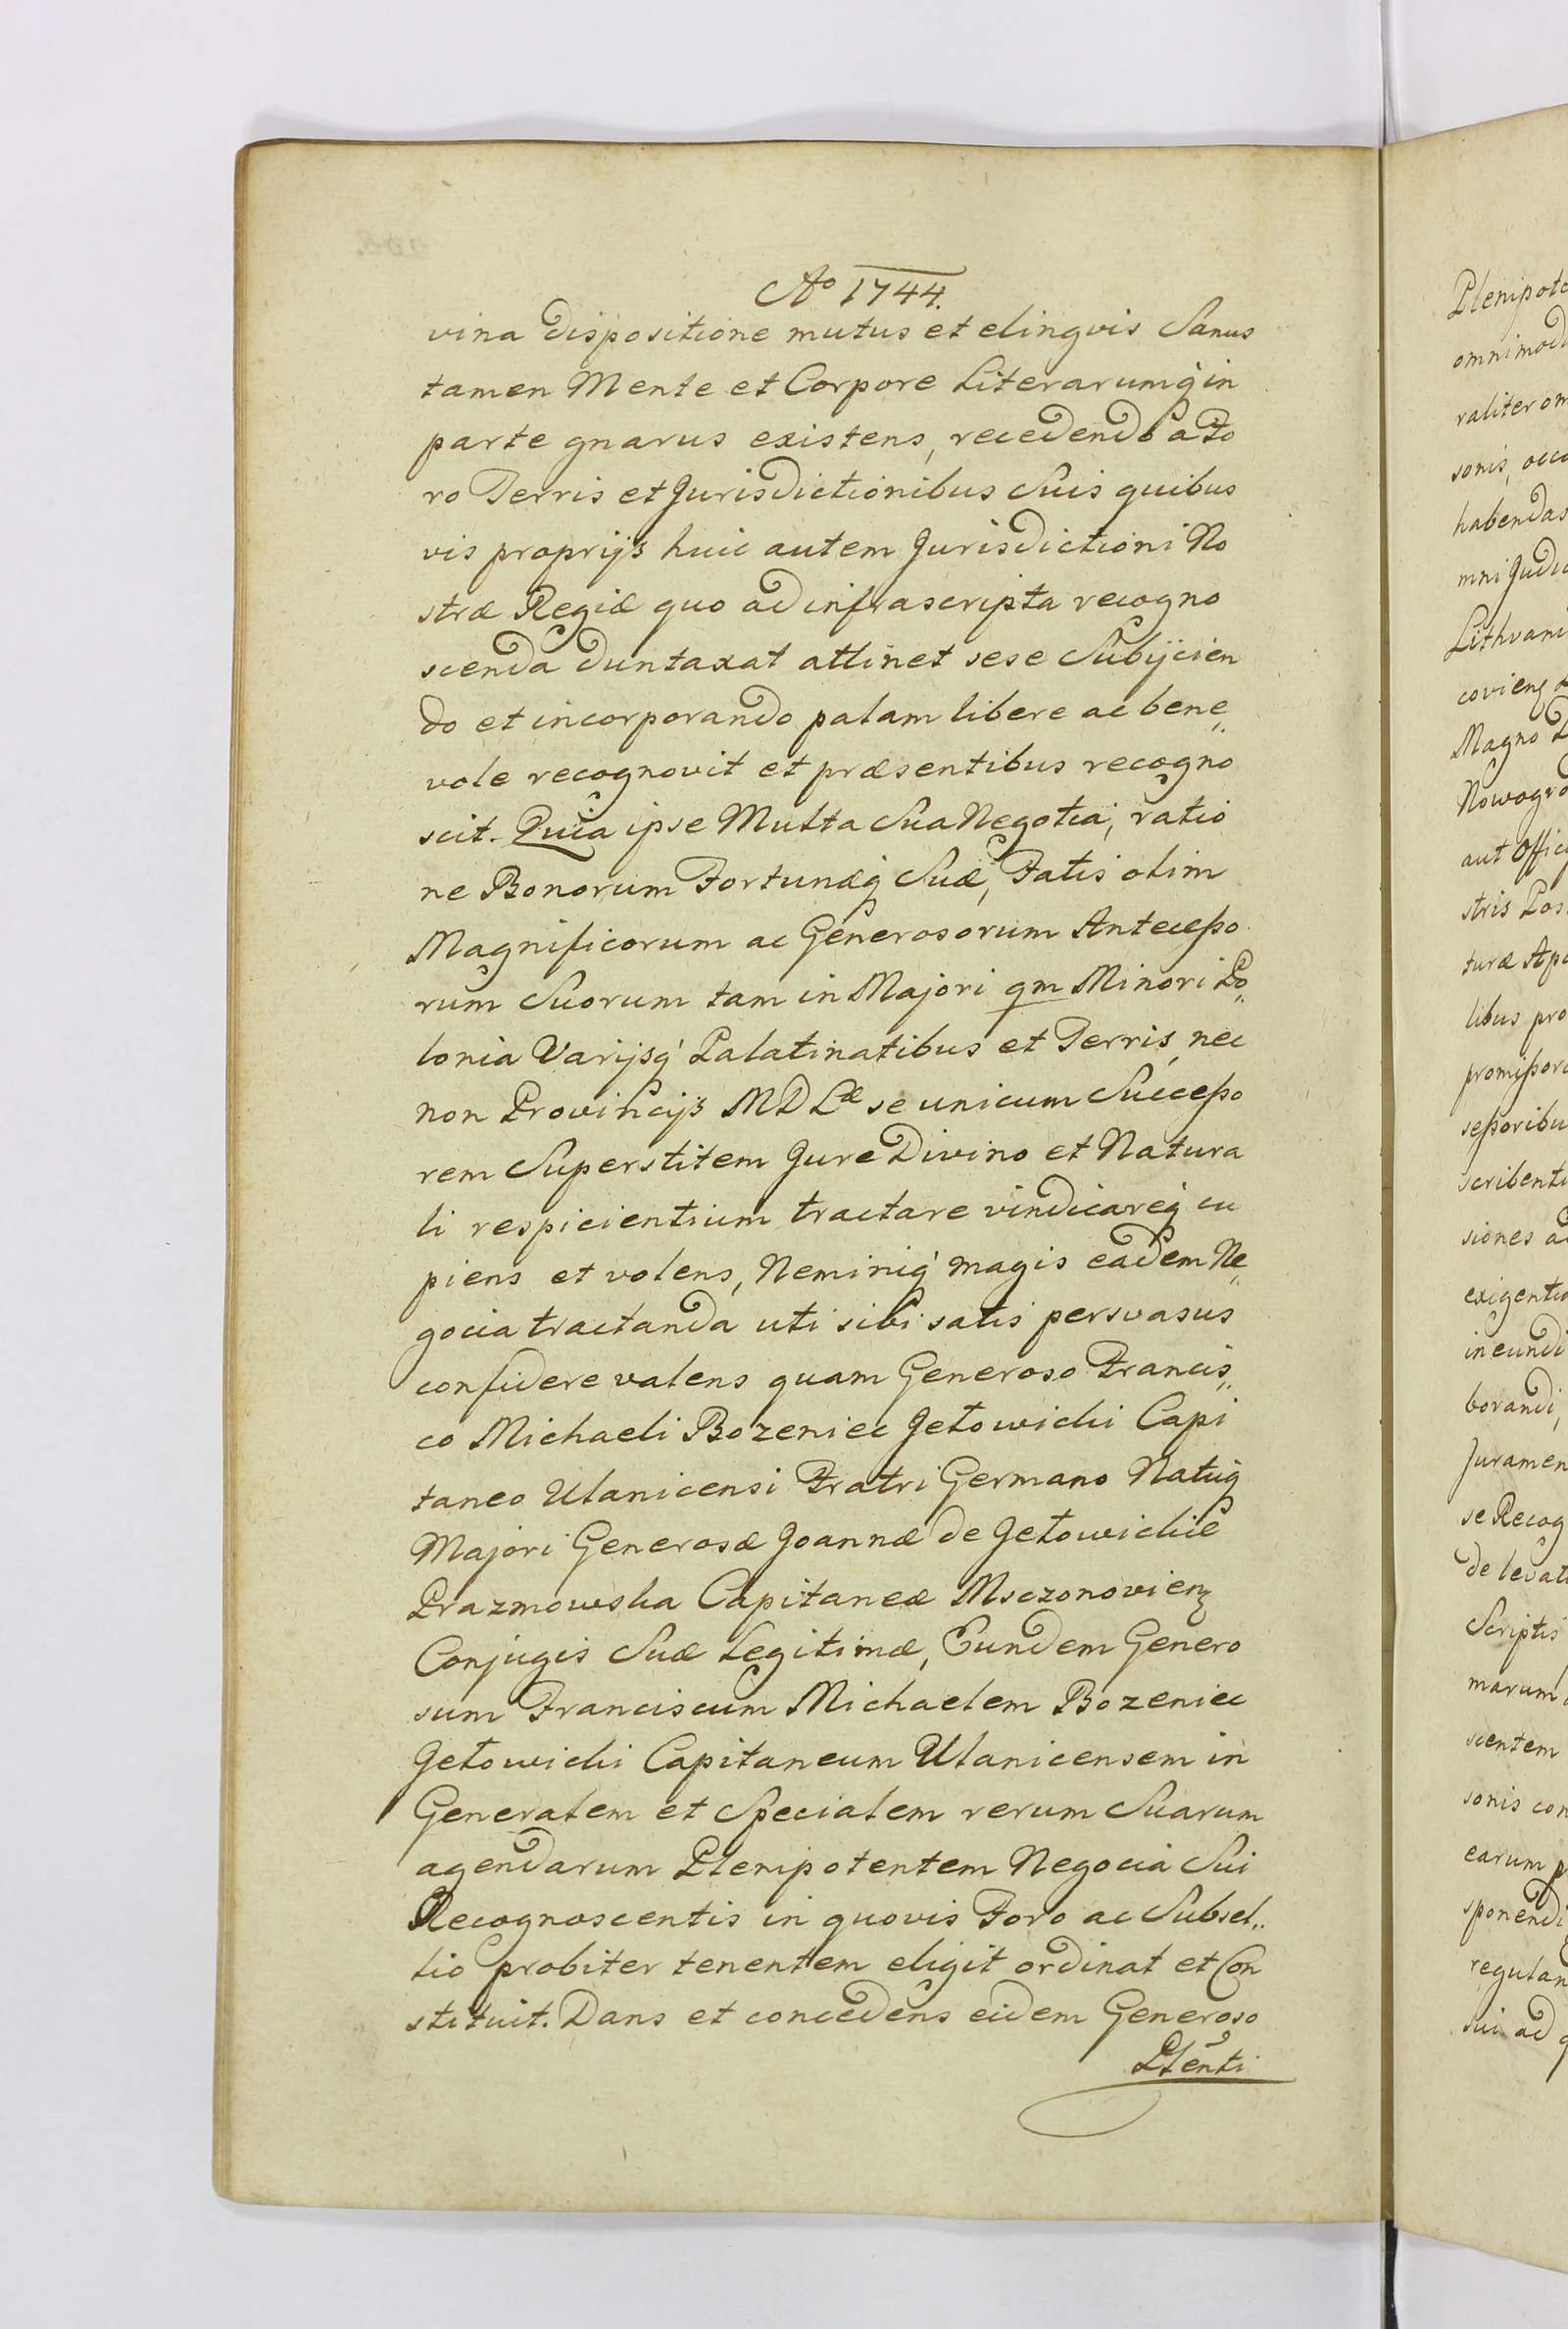 Ao 1744.
vina dispositione mutus et elingvis Sanus
tamen Mente et Corpore Literarumq́ in
parte gnarus existens, recedendo a Fo
ro Terris et Jurisdictionibus Suis quibus
vis proprijs huic autem Jurisdictioni No
stræ Regiæ quo ad infrascripta recogno
scenda duntaxat attinet sese Subijcien
do et incorporando palam libere ac bene„
vole recognovit et præsentibus recogno
scit. Quia ipse Multa Sua Negotia, ratio
ne Bonorum Fortunæq́ Suæ, Fatis olim
Magnificorum ac Generosorum Anteceßo
rum Suorum tam in Majori qm Minori Po„
lonia Varijsq́ Palatinatibus et Terris, nec
non Provincijs M D Læ se unicum Succeßo
rem Superstitem Jure Divino et Natura
li respicientium tractare vindicareq́ cu
piens et volens, Neminiq́ magis eadem Ne„
gocia tractanda uti sibi satis persvasus
confidere valens quam Generoso Francis„
co Michaeli Bozeniec Jełowicki Capi
taneo Ulanicensi Fratri Germano Natuq́
Majori Generosæ Joannæ de Jełowickie
Prazmowska Capitaneæ Msczonovien
Conjugis Suæ Legitimæ, Eundem Genero
sum Franciscum Michaelem Bozeniec
Jełowicki Capitaneum Ulanicensem in
Generalem et Specialem rerum Suarum
agendarum Plenipotentem Negocia Sui
Recognoscentis in quovis Foro ac Subsel„
lio probiter tenentem eligit ordinat et Con
stituit. Dans et concedens eidem Generoso
Plenti
Plenipote
omnimod
raliter om
sonis, occa
habendas
mni Judic
Lithvani
Magno
Nowogro
aut Offic
stris Pos
turæ Ap
libus pro
promißor
seßoribu
scribenti
siones a
exigentia
ineundi
borandi,
Juramen
se Recog
de levat
Scriptis
marum
scentem
sonis con
earum p
spondendi
regulan
sui ad q